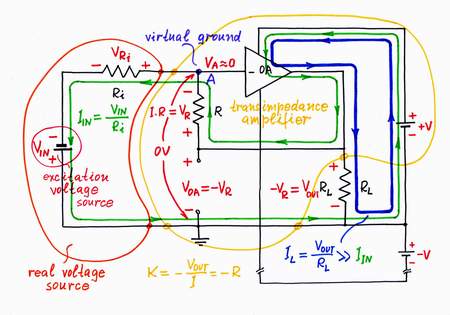 virtual ground
VRi
VA≈0
A
- OA
Ri
IIN = VIN/Ri
I.R = VR
R
transimpedance amplifier
+V
VIN
0V
excitation voltage source
VOA = -VR
-VR = VOUT
RL
RL
IL = VOUT/RL >> IIN
-V
real voltage source
K = - VOUT/I = -R